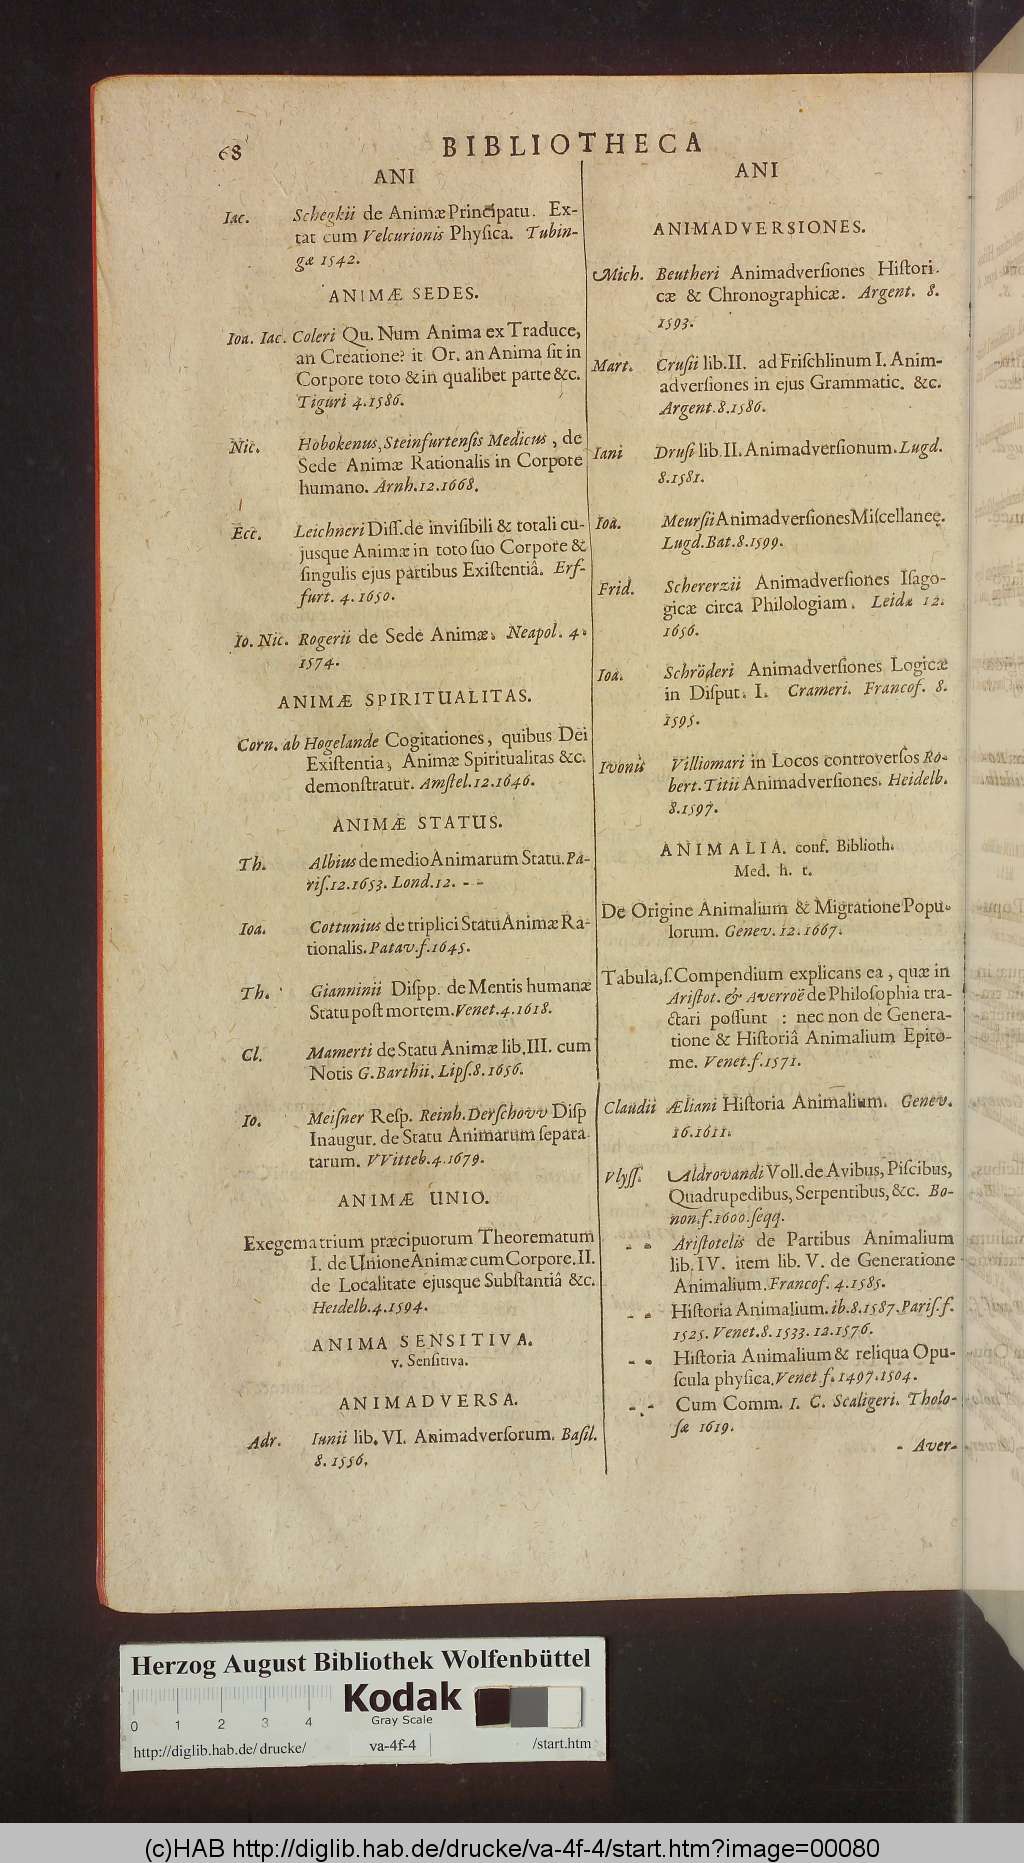 68
BIBLIOTHECA
ANI
Iac. Schegkii de Animæ Principatu. Ex-
tat cum Velcurionis Phyſica. Tubin-
gæ 1542.
ANIMÆ SEDES.
Ioa. Iac. Coleri Qu. Num Anima ex Traduce,
an Creatione? it Or. an Anima ſit in
Corpore toto & in qualibet parte &c.
Tiguri 4. 1586.
Nic. Hobokenus, Steinfurtenſis Medicus, de
Sede Animæ Rationalis in Corpore
humano. Arnh. 12. 1668.
Ecc. Leichneri Diſſ. de inviſibili & totali cu-
jusque Animæ in toto ſuo Corpore &
ſingulis ejus partibus Exiſtentiâ. Erf-
furt. 4. 1650.
Io. Nic. Rogerii de Sede Animæ. Neapol. 4.
1574.
ANIMÆ SPIRITUALITAS.
Corn. ab Hogelande Cogitationes, quibus Dei
Exiſtentia, Animæ Spiritualitas &c.
demonſtratur. Amſtel. 12. 1646.
ANIMÆ STATUS.
Th. Albius de medio Animarum Statu. Pa-
riſ. 12. 1653. Lond. 12. - -
Ioa. Cottunius de triplici Statu Animæ Ra-
tionalis. Patav. f. 1645.
Th. Gianninii Diſpp. de Mentis humanæ
Statu poſt mortem. Venet. 4. 1618.
Cl. Mamerti de Statu Animæ lib. III. cum
Notis G. Barthii. Lipſ. 8. 1656.
Io. Meiſner Reſp. Reinh. Derſchovv Diſp
Inaugur. de Statu Animarum ſepara
tarum. VVitteb. 4. 1679.
ANIMÆ UNIO.
Exegematrium præcipuorum Theorematum
I. de Unione Animæ cum Corpore. II.
de Localitate ejusque Subſtantiâ &c.
Heidelb. 4. 1594.
ANIMA SENSITIVA.
v. Senſitiva.
ANIMADVERSA.
Adr. Iunii lib. VI. Animadverſorum. Baſil.
8. 1556.
ANI
ANIMADVERSIONES.
Mich. Beutheri Animadverſiones Hiſtori.
cæ & Chronographicæ. Argent. 8.
1593.
Mart. Cruſii lib. II. ad Friſchlinum I. Anim-
adverſiones in ejus Grammatic. &c.
Argent. 8. 1586.
Iani Druſi lib. II. Animadverſionum. Lugd.
8. 1581.
Ioa. Meurſii Animadverſiones Miſcellaneę.
Lugd. Bat. 8. 1599.
Frid. Schererzii Animadverſiones Iſago-
gicæ circa Philologiam. Leidæ 12.
1656.
Ioa. Schröderi Animadverſiones Logicæ
in Diſput. I. Crameri. Francof. 8.
1595.
Ivonis Villiomari in Locos controverſos Ro-
bert. Titii Animadverſiones. Heidelb.
8. 1597.
ANIMALIA. conf. Biblioth.
Med. h. t.
De Origine Animalium & Migratione Popu-
lorum. Genev. 12. 1667.
Tabula, ſ. Compendium explicans ea, quæ in
Ariſtot. & Averroë de Philoſophia tra-
ctari poſſunt : nec non de Genera-
tione & Hiſtoriâ Animalium Epito-
me. Venet. f. 1571.
Claudii Æliani Hiſtoria Animalium. Genev.
16. 1611.
Vlyſſ. Aldrovandi Voll. de Avibus, Piſcibus,
Quadrupedibus, Serpentibus, &c. Bo-
non. f. 1600. ſeqq.
- - Ariſtotelis de Partibus Animalium
lib. IV. item lib. V. de Generatione
Animalium. Francof. 4. 1585.
- - Hiſtoria Animalium. ib. 8. 1587. Pariſ. f.
1525. Venet. 8. 1533. 12. 1576.
- - Hiſtoria Animalium & reliqua Opu-
ſcula phyſica. Venet f. 1497. 1504.
- - Cum Comm. I. C. Scaligeri. Tholo-
ſæ 1619.
- Aver-
Herzog August Bibliothek Wolfenbüttel
Kodak
Gray Scale
0 1 2 3 4
http://diglib.hab.de/ drucke/ va-4f-4 /start.htm
(c)HAB http://diglib.hab.de/drucke/va-4f-4/start.htm?image=00080